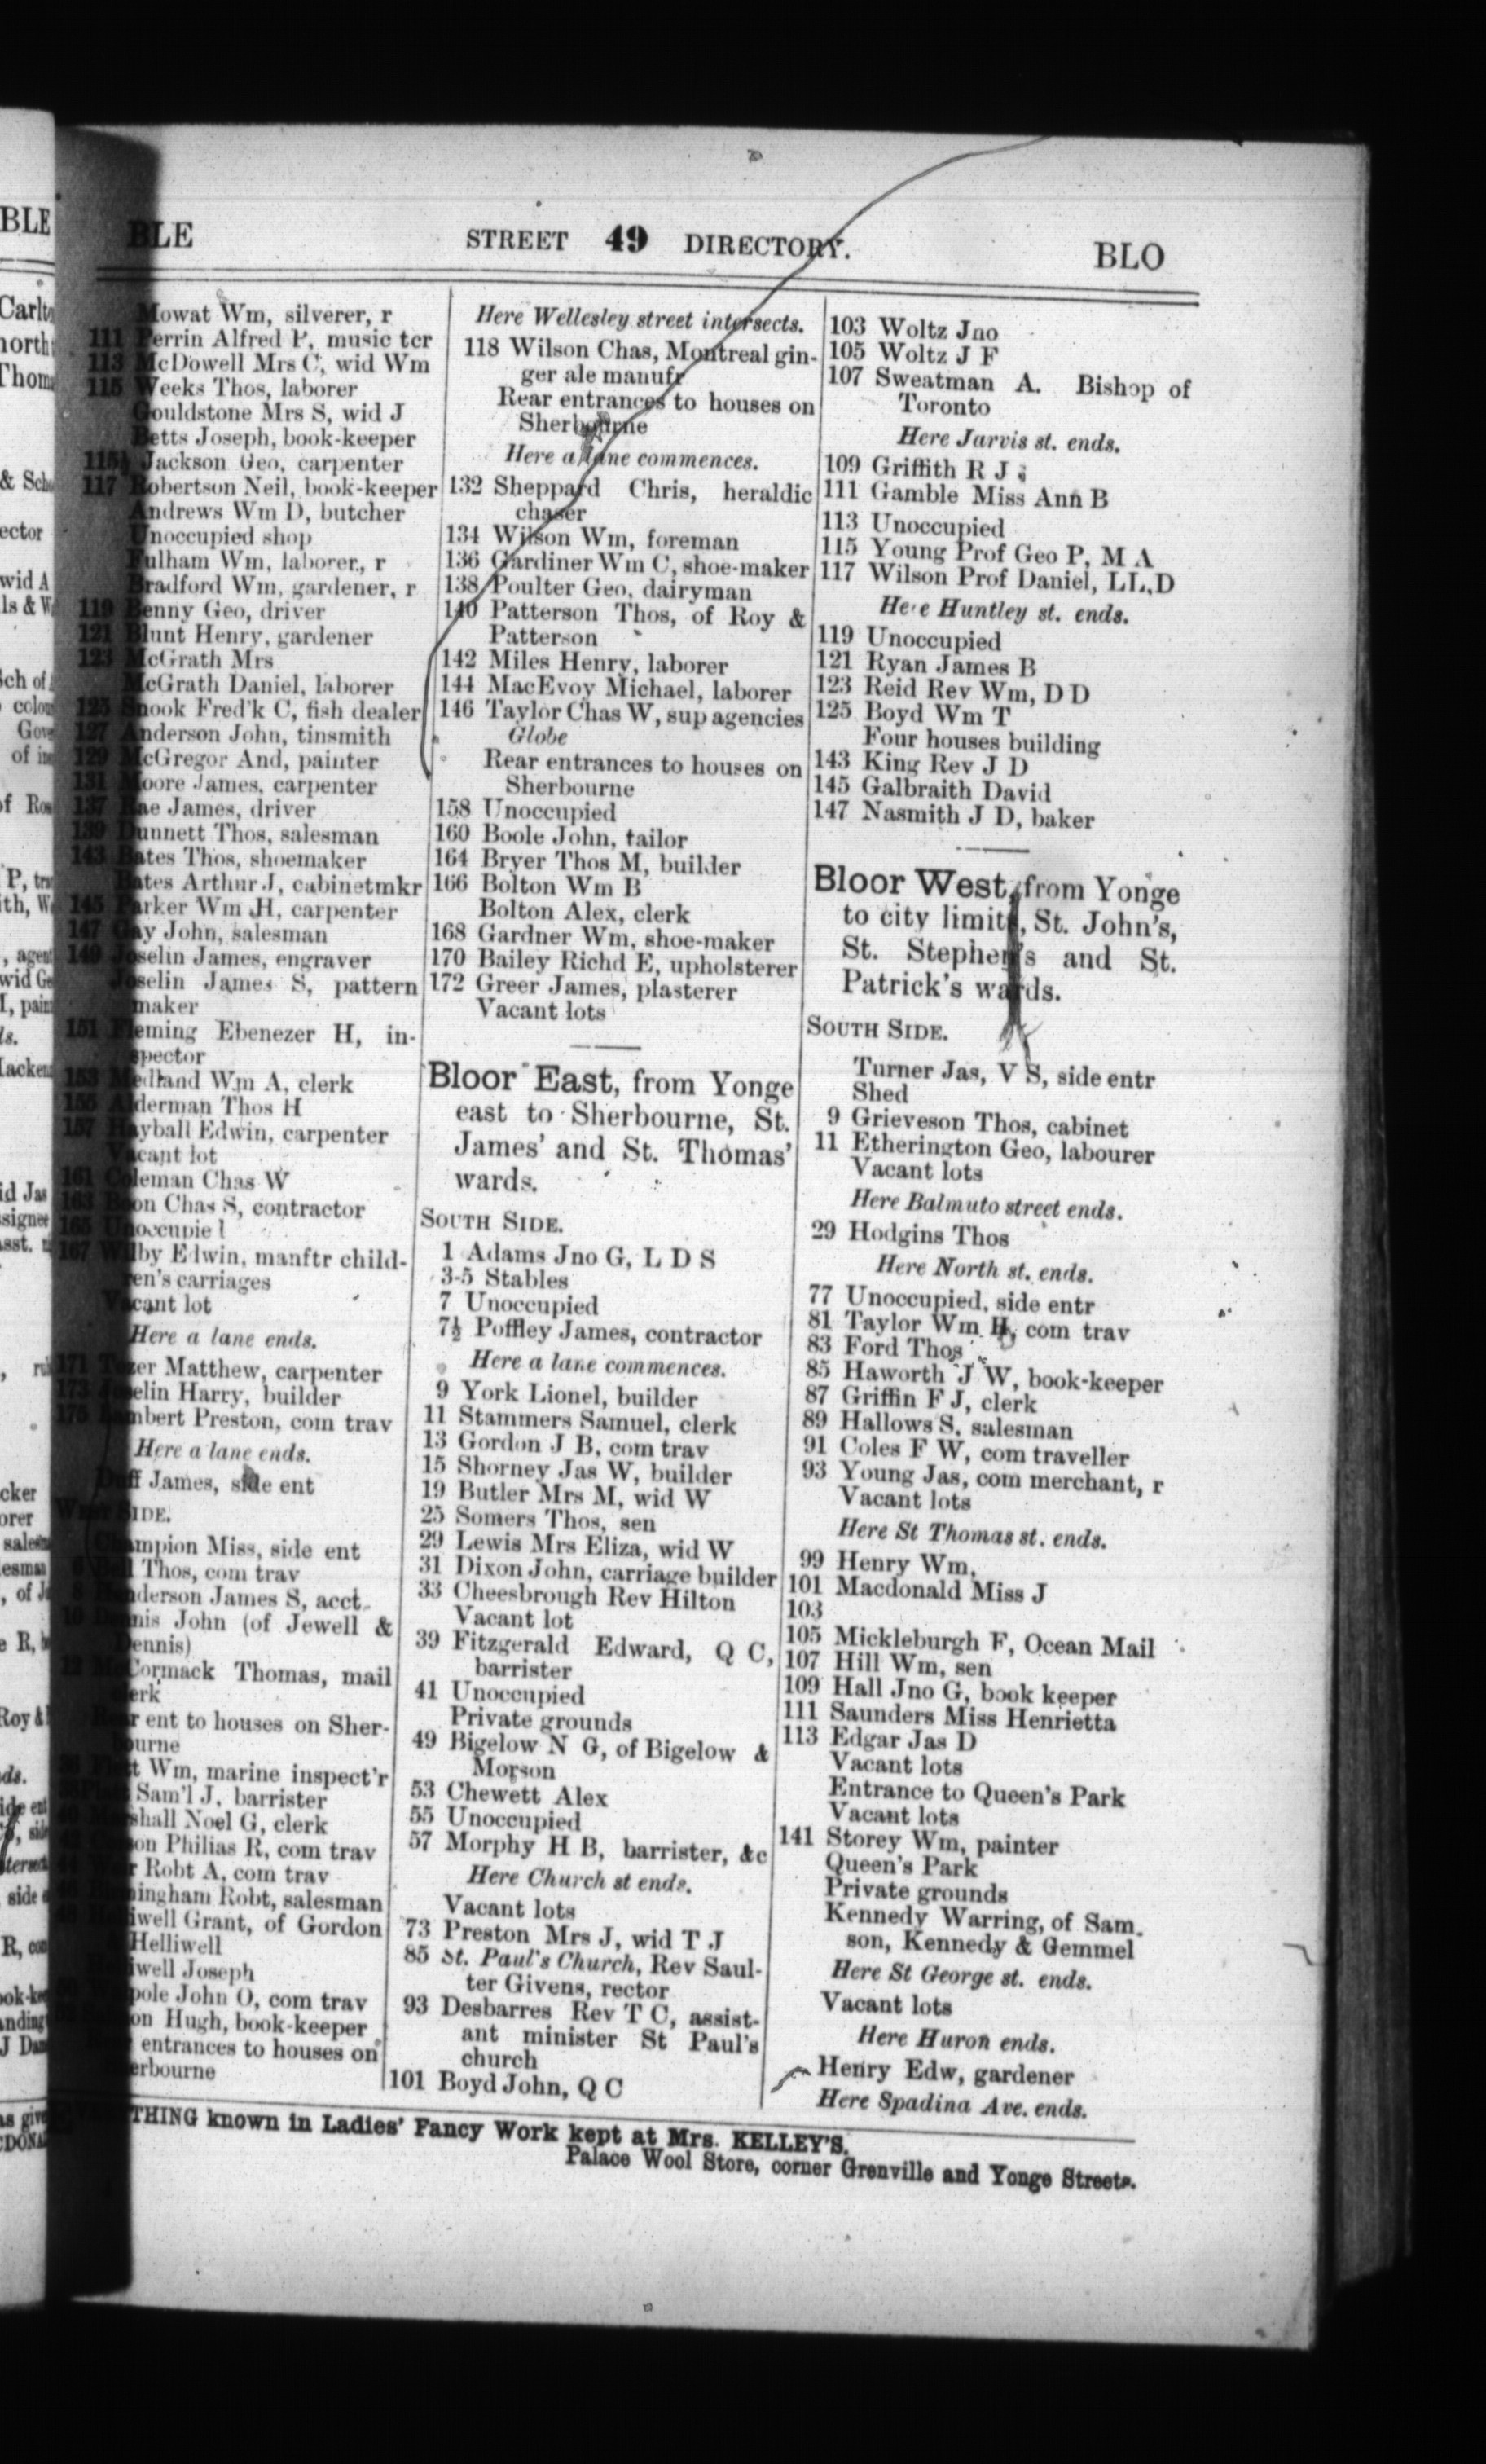 BLE STREET 49 DIRECTORY. BLO
Mowat Wm, silverer, r
111 Perrin Alfred P, music tcr
113 McDowell Mrs C, wid Wm
115 Weeks Thos, laborer
Gouldstone Mrs S, wid J
Betts Joseph, book-keeper
115½ Jackson Geo, carpenter
117 Robertson Neil, book-keeper
Andrews Wm D, butcher
Unoccupied shop
Fulham Wm, laborer, r
Bradford Wm, gardener, r
119 Benny Geo, driver
121 Blunt Henry, gardener
123 McGrath Mrs
McGrath Daniel, laborer
125 Snook Fred'k C, fish dealer
127 Anderson John, tinsmith
129 McGregor And, painter
131 Moore James, carpenter
137 Rae James, driver
139 Dunnett Thos, salesman
143 Bates Thos, shoemaker
Bates Arthur J, cabinetmkr
145 Parker Wm H, carpenter
147 Gay John, salesman
149 Joselin James, engraver
Joselin James S, pattern
maker
151 Fleming Ebenezer H, in-
spector
153 Medland Wm A, clerk
155 Alderman Thos H
157 Hayball Edwin, carpenter
Vacant lot
161 Coleman Chas W
163 Boon Chas S, contractor
165 Unoccupied
167 Wilby Edwin, manftr child-
ren's carriages
Vacant lot
Here a lane ends.
171 Tozer Matthew, carpenter
173 Joselin Harry, builder
175 Lambert Preston, com trav
Here a lane ends.
Duff James, side ent
WEST SIDE.
Champion Miss, side ent
6 Bell Thos, com trav
8 Henderson James S, acct
10 Dennis John (of Jewell &
Dennis)
12 McCormack Thomas, mail
clerk
Rear ent to houses on Sher-
bourne
Wm, marine inspect'r
Sam'l J, barrister
Marshall Noel G, clerk
Philias R, com trav
Robt A, com trav
Birmingham Robt, salesman
Helliwell Grant, of Gordon
& Helliwell
Helliwell Joseph
John O, com trav
Hugh, book-keeper
entrances to houses on
Sherbourne
Here Wellesley street intersects.
118 Wilson Chas, Montreal gin-
ger ale manufr
Rear entrances to houses on
Sherbourne
Here a lane commences.
132 Sheppard Chris, heraldic
chaser
134 Wilson Wm, foreman
136 Gardiner Wm C, shoe-maker
138 Poulter Geo, dairyman
140 Patterson Thos, of Roy &
Patterson
142 Miles Henry, laborer
144 MacEvoy Michael, laborer
146 Taylor Chas W, sup agencies
Globe
Rear entrances to houses on
Sherbourne
158 Unoccupied
160 Boole John, tailor
164 Bryer Thos M, builder
166 Bolton Wm B
Bolton Alex, clerk
168 Gardner Wm, shoe-maker
170 Bailey Richd E, upholsterer
172 Greer James, plasterer
Vacant lots
Bloor East, from Yonge
east to Sherbourne, St.
James' and St. Thomas'
wards.
SOUTH SIDE.
1 Adams Jno G, L D S
3-5 Stables
7 Unoccupied
7½ Poffley James, contractor
Here a lane commences.
9 York Lionel, builder
11 Stammers Samuel, clerk
13 Gordon J B, com trav
15 Shorney Jas W, builder
19 Butler Mrs M, wid W
25 Somers Thos, sen
29 Lewis Mrs Eliza, wid W
31 Dixon John, carriage builder
33 Cheesbrough Rev Hilton
Vacant lot
39 Fitzgerald Edward, Q C,
barrister
41 Unoccupied
Private grounds
49 Bigelow N G, of Bigelow &
Morson
53 Chewett Alex
55 Unoccupied
57 Morphy H B, barrister, &c
Here Church st ends.
Vacant lots
73 Preston Mrs J, wid T J
85 St. Paul's Church, Rev Saul-
ter Givens, rector
93 Desbarres Rev T C, assist-
ant minister St Paul's
church
101 Boyd John, Q C
103 Woltz Jno
105 Woltz J F
107 Sweatman A. Bishop of
Toronto
Here Jarvis st. ends.
109 Griffith R J
111 Gamble Miss Ann B
113 Unoccupied
115 Young Prof Geo P, M A
117 Wilson Prof Daniel, LL.D
Here Huntley st. ends.
119 Unoccupied
121 Ryan James B
123 Reid Rev Wm, D D
125 Boyd Wm T
Four houses building
143 King Rev J D
145 Galbraith David
147 Nasmith J D, baker
Bloor West, from Yonge
to city limits, St. John's,
St. Stephen's and St.
Patrick's wards.
SOUTH SIDE.
Turner Jas, V S, side entr
Shed
9 Grieveson Thos, cabinet
11 Etherington Geo, labourer
Vacant lots
Here Balmuto street ends.
29 Hodgins Thos
Here North st. ends.
77 Unoccupied, side entr
81 Taylor Wm H, com trav
83 Ford Thos
85 Haworth J W, book-keeper
87 Griffin F J, clerk
89 Hallows S, salesman
91 Coles F W, com traveller
93 Young Jas, com merchant, r
Vacant lots
Here St Thomas st. ends.
99 Henry Wm,
101 Macdonald Miss J
103
105 Mickleburgh F, Ocean Mail
107 Hill Wm, sen
109 Hall Jno G, book keeper
111 Saunders Miss Henrietta
113 Edgar Jas D
Vacant lots
Entrance to Queen's Park
Vacant lots
141 Storey Wm, painter
Queen's Park
Private grounds
Kennedy Warring, of Sam-
son, Kennedy & Gemmel
Here St George st. ends.
Vacant lots
Here Huron ends.
Henry Edw, gardener
Here Spadina Ave. ends.
THING known in Ladies' Fancy Work kept at Mrs. KELLEY'S.
Palace Wool Store, corner Grenville and Yonge Streets.